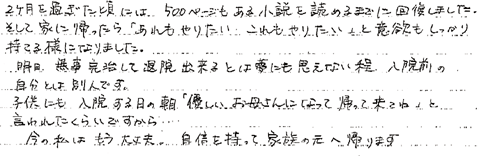 2ヶ月を過ぎた頃には、500ページもある小説を読めるまでに回復しました。
そして家に帰ったら「あれもやりたい、これもやりたい」と意欲もしっかり
持てる様になりました。
明日、無事完治して退院出来るとは夢にも思えない程、入院前の
自分とは別人です。
子供にも入院する日の朝「優しいお母さんになって帰って来てね」と
言われたくらいですから…
今の私はもう大丈夫。自信を持って家族の元へ帰ります